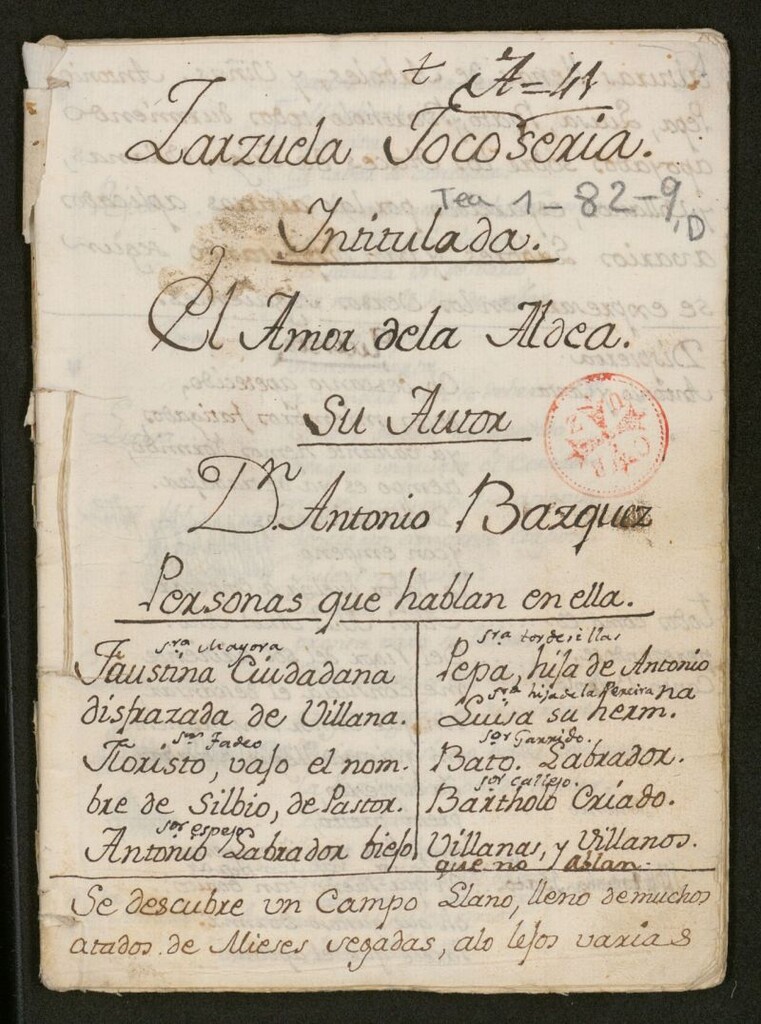 t A=41
Zarzuela Jocoseria.
Tea 1-82-9, D
Intitulada.
El Amor dela Aldea.
Su Autor
Dn. Antonio Bazquez
Personas que hablan en ella.
sra Mayora
Faustina Ciudadana
disfrazada de Villana.
sor Tadeo
Floristo, vajo el nom-
bre de Silbio, de Pastor.
sor espejo
Antonio Labrador biejo
sra tordesillas
Pepa, hija de Antonio
sra hija de la Pereira na
Luisa su herm.
sor Garrido.
Bato. Labrador.
sor callejo.
Bartholo Criado.
Villanas, y Villanos.
que no ablan.
Se descubre un Campo Llano, lleno de muchos
atados de Mieses segadas, alo lejos varias